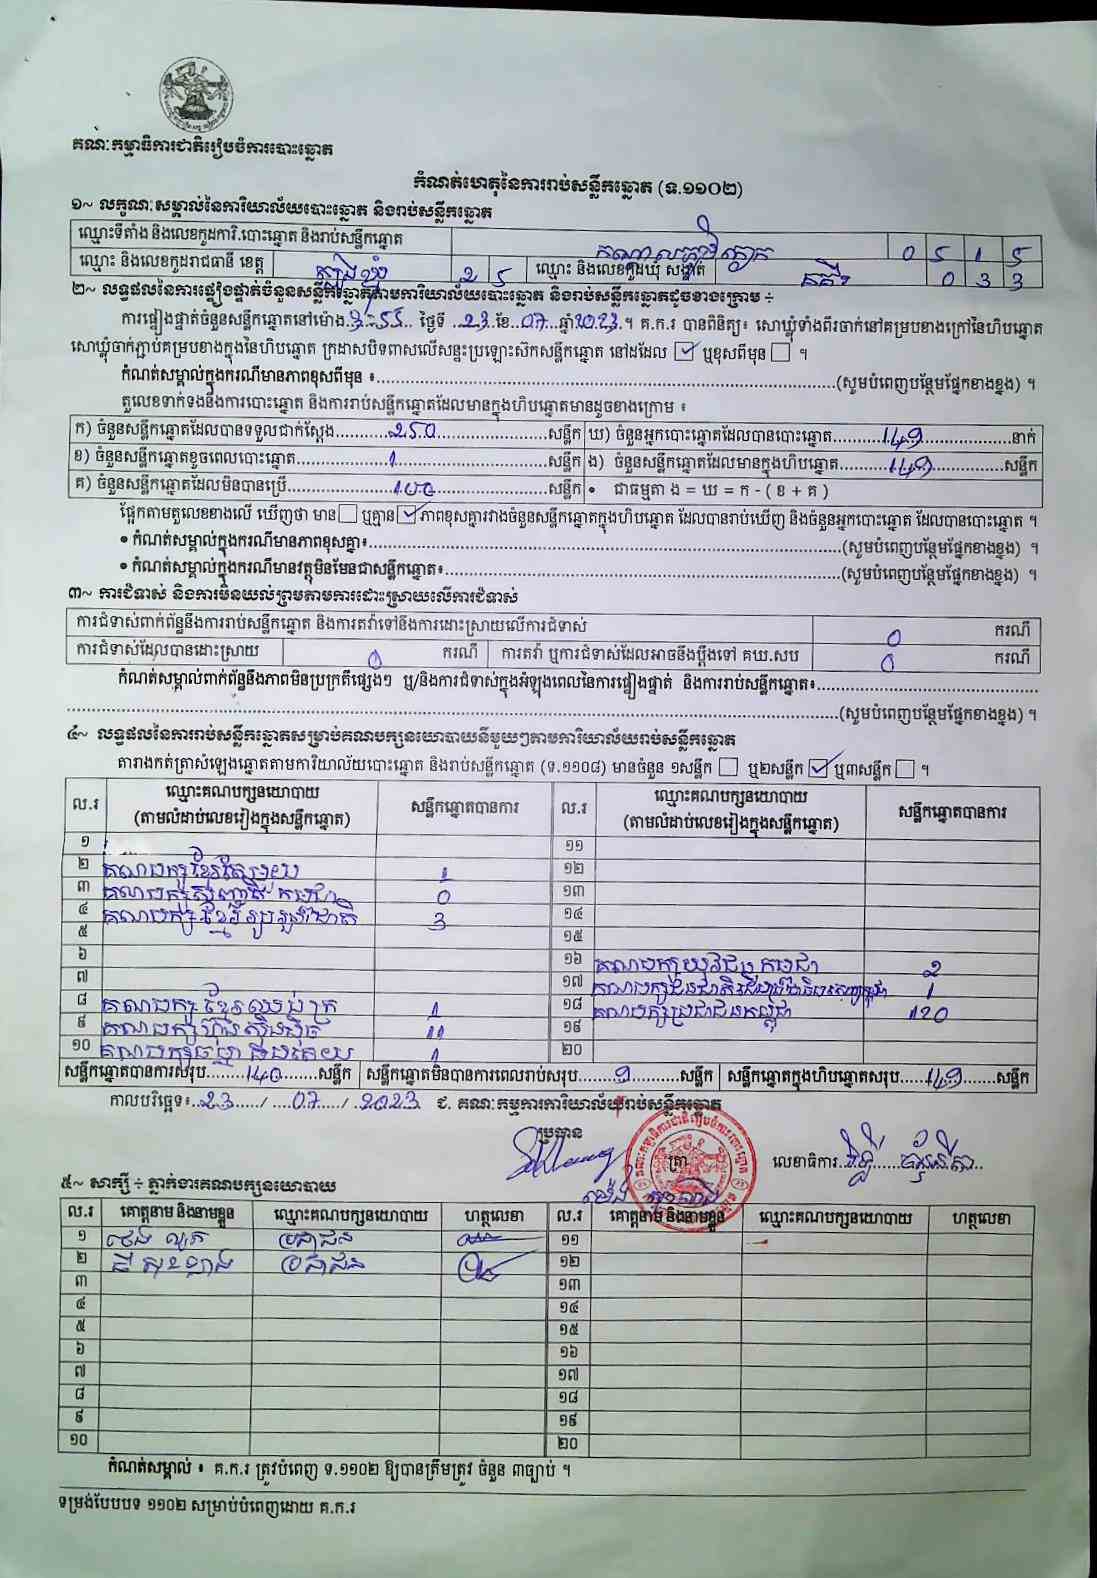 គណៈកម្មាធិការជាតិរៀបចំការបោះឆ្នោត
កំណត់ហេតុនៃការរាប់សន្លឹកឆ្នោត (ទ.១១០២)
១~ លក្ខណៈសម្គាល់នៃការិយាល័យបោះឆ្នោត និងរាប់សន្លឹកឆ្នោត
ឈ្មោះទីតាំង និងលេខកូដការិ.បោះឆ្នោត និងរាប់សន្លឹកឆ្នោត 0 5 1 5
ឈ្មោះ និងលេខកូដរាជធានី ខេត្ត ត្បូងឃ្មុំ 2 5 ឈ្មោះ និងលេខកូដឃុំ សង្កាត់ 0 3 3
២~ លទ្ធផលនៃការផ្ទៀងផ្ទាត់ចំនួនសន្លឹកឆ្នោតតាមការិយាល័យបោះឆ្នោត និងរាប់សន្លឹកឆ្នោតដូចខាងក្រោម ÷
ការផ្ទៀងផ្ទាត់ចំនួនសន្លឹកឆ្នោតនៅម៉ោង.3-55... ថ្ងៃទី ..23..ខែ..07...ឆ្នាំ2023.។ គ.ក.រ បានពិនិត្យ៖ សោឃ្លុំទាំងពីរចាក់នៅគម្របខាងក្រៅនៃហិបឆ្នោត
សោឃ្លុំចាក់ភ្ជាប់គម្របខាងក្នុងនៃហិបឆ្នោត ក្រដាសបិទពាសលើសន្ទះប្រឡោះស៊កសន្លឹកឆ្នោត នៅដដែល ☑ ឬខុសពីមុន ☐ ។
កំណត់សម្គាល់ក្នុងករណីមានភាពខុសពីមុន ៖...(សូមបំពេញបន្ថែមផ្នែកខាងខ្នង) ។
តួលេខទាក់ទងនឹងការបោះឆ្នោត និងការរាប់សន្លឹកឆ្នោតដែលមានក្នុងហិបឆ្នោតមានដូចខាងក្រោម ៖
ក) ចំនួនសន្លឹកឆ្នោតដែលបានទទួលជាក់ស្តែង...250...សន្លឹក ឃ) ចំនួនអ្នកបោះឆ្នោតដែលបានបោះឆ្នោត...149...នាក់
ខ) ចំនួនសន្លឹកឆ្នោតខូចពេលបោះឆ្នោត...1...សន្លឹក ង) ចំនួនសន្លឹកឆ្នោតដែលមានក្នុងហិបឆ្នោត...149...សន្លឹក
គ) ចំនួនសន្លឹកឆ្នោតដែលមិនបានប្រើ...100...សន្លឹក • ជាធម្មតា ង = ឃ = ក - ( ខ + គ )
ផ្អែកតាមតួលេខខាងលើ ឃើញថា មាន☐ ឬគ្មាន☑ ភាពខុសគ្នារវាងចំនួនសន្លឹកឆ្នោតក្នុងហិបឆ្នោត ដែលបានរាប់ឃើញ និងចំនួនអ្នកបោះឆ្នោត ដែលបានបោះឆ្នោត ។
• កំណត់សម្គាល់ក្នុងករណីមានភាពខុសគ្នា៖...(សូមបំពេញបន្ថែមផ្នែកខាងខ្នង) ។
• កំណត់សម្គាល់ក្នុងករណីមានវត្ថុមិនមែនជាសន្លឹកឆ្នោត៖...(សូមបំពេញបន្ថែមផ្នែកខាងខ្នង) ។
៣~ ការជំទាស់ និងការមិនយល់ព្រមតាមការដោះស្រាយលើការជំទាស់
ការជំទាស់ពាក់ព័ន្ធនឹងការរាប់សន្លឹកឆ្នោត និងការតវ៉ាទៅនឹងការដោះស្រាយលើការជំទាស់ 0 ករណី
ការជំទាស់ដែលបានដោះស្រាយ 0 ករណី ការតវ៉ា ឬការជំទាស់ដែលអាចនឹងប្តឹងទៅ គឃ.សប 0 ករណី
កំណត់សម្គាល់ពាក់ព័ន្ធនឹងភាពមិនប្រក្រតីផ្សេងៗ ឬ/និងការជំទាស់ក្នុងអំឡុងពេលនៃការផ្ទៀងផ្ទាត់ និងការរាប់សន្លឹកឆ្នោត៖...
...(សូមបំពេញបន្ថែមផ្នែកខាងខ្នង) ។
៤~ លទ្ធផលនៃការរាប់សន្លឹកឆ្នោតសម្រាប់គណបក្សនយោបាយនីមួយៗតាមការិយាល័យរាប់សន្លឹកឆ្នោត
តារាងកត់ត្រាសំឡេងឆ្នោតតាមការិយាល័យបោះឆ្នោត និងរាប់សន្លឹកឆ្នោត (ទ.១១០៨) មានចំនួន ១សន្លឹក ☐ ឬ២សន្លឹក ☑ ឬ៣សន្លឹក ☐ ។
ល.រ ឈ្មោះគណបក្សនយោបាយ (តាមលំដាប់លេខរៀងក្នុងសន្លឹកឆ្នោត) សន្លឹកឆ្នោតបានការ ល.រ ឈ្មោះគណបក្សនយោបាយ (តាមលំដាប់លេខរៀងក្នុងសន្លឹកឆ្នោត) សន្លឹកឆ្នោតបានការ
១ ១១
២ គណបក្ស 1 ១២
៣ គណបក្ស 0 ១៣
៤ គណបក្សខ្មែររួបរួមជាតិ 3 ១៤
៥ ១៥
៦ ១៦ គណបក្សយុវជនកម្ពុជា 2
៧ ១៧ គណបក្ស 1
៨ គណបក្សខ្មែរឈប់ក្រ 1 ១៨ គណបក្សប្រជាជនកម្ពុជា 120
៩ គណបក្សហ៊្វុនស៊ិនប៉ិច 11 ១៩
១០ គណបក្សធម្មាធិបតេយ្យ 1 ២០
សន្លឹកឆ្នោតបានការសរុប...140...សន្លឹក សន្លឹកឆ្នោតមិនបានការពេលរាប់សរុប...9...សន្លឹក សន្លឹកឆ្នោតក្នុងហិបឆ្នោតសរុប...149...សន្លឹក
កាលបរិច្ឆេទ៖..23...../....07...../..2023 ជ. គណៈកម្មការការិយាល័យរាប់សន្លឹកឆ្នោត
ប្រធាន ត្រា លេខាធិការ
៥~ សាក្សី ÷ ភ្នាក់ងារគណបក្សនយោបាយ
ល.រ គោត្តនាម និងនាមខ្លួន ឈ្មោះគណបក្សនយោបាយ ហត្ថលេខា ល.រ គោត្តនាម និងនាមខ្លួន ឈ្មោះគណបក្សនយោបាយ ហត្ថលេខា
១ ប្រជាជន ១១
២ ប្រជាជន ១២
៣ ១៣
៤ ១៤
៥ ១៥
៦ ១៦
៧ ១៧
៨ ១៨
៩ ១៩
១០ ២០
កំណត់សម្គាល់ ៖ គ.ក.រ ត្រូវបំពេញ ទ.១១០២ ឱ្យបានត្រឹមត្រូវ ចំនួន ៣ច្បាប់ ។
ទម្រង់បែបបទ ១១០២ សម្រាប់បំពេញដោយ គ.ក.រ